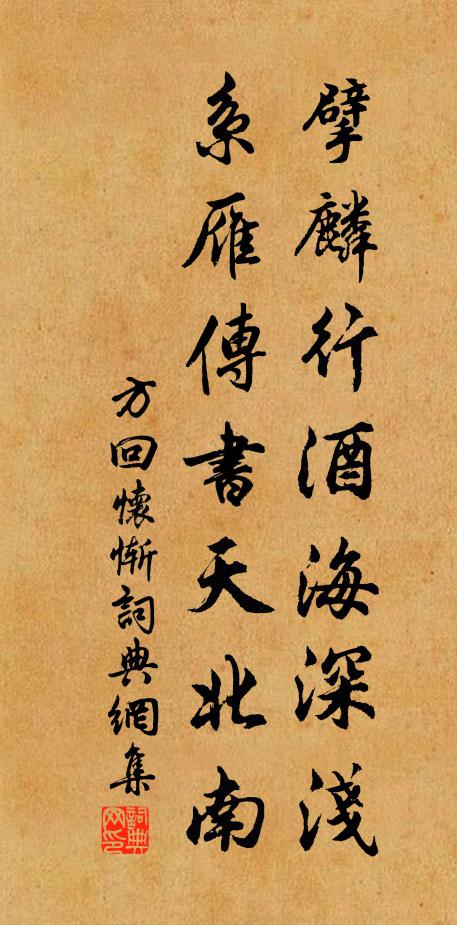 擘麟行酒海深淺
系雁傳書天北南
方回懷慚詞典網集
詞典网印